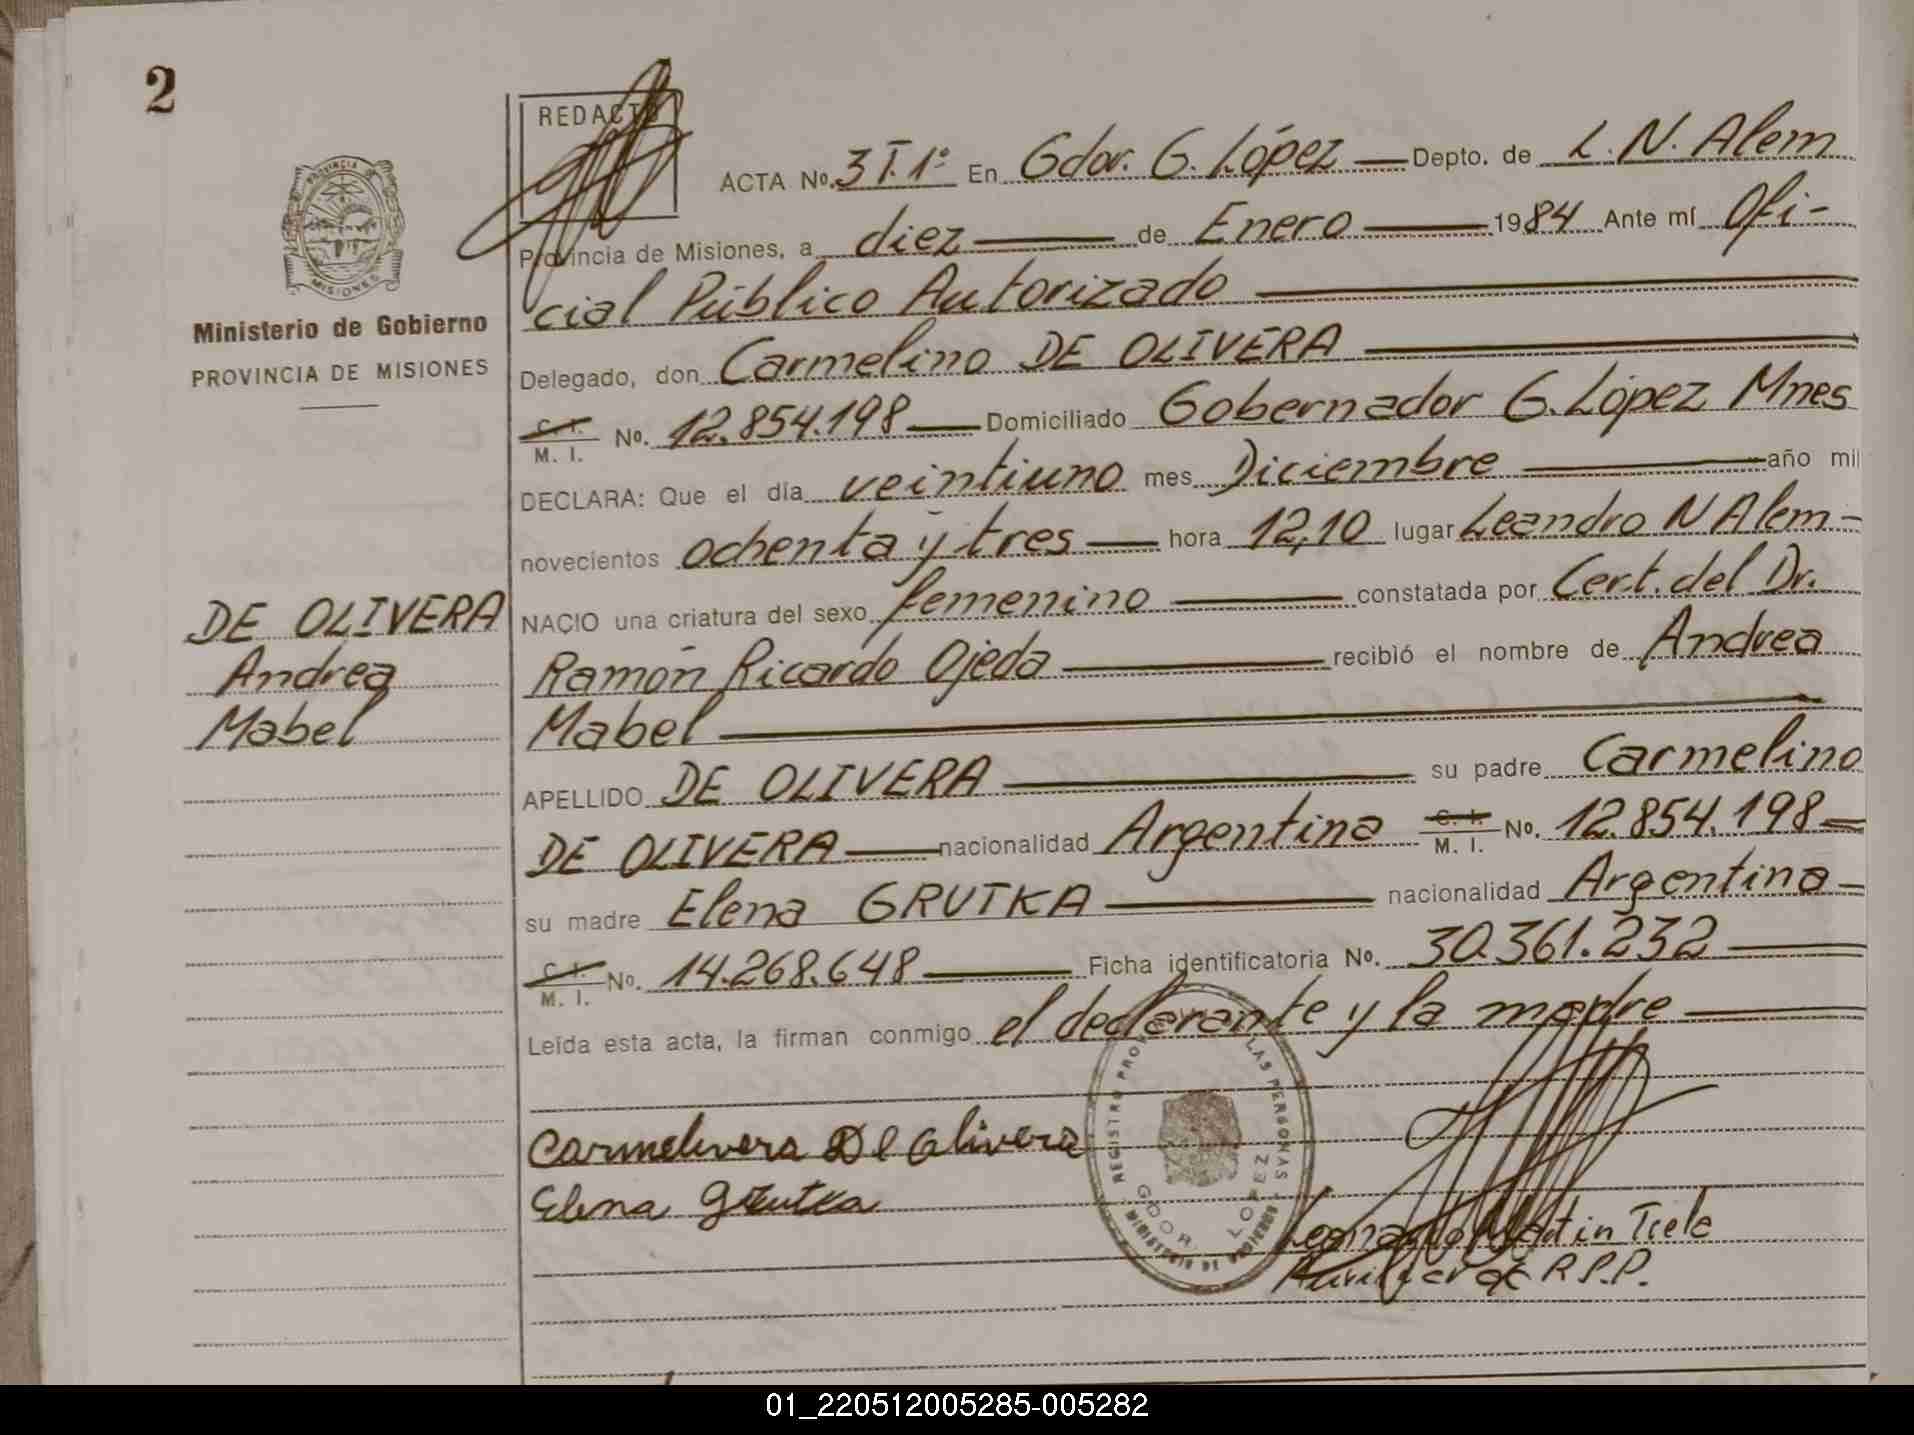 2
REDACTO
ACTA No. 3 T. 1º En Gdor. G. López Depto. de L. N. Alem
Provincia de Misiones, a diez de Enero 1984 Ante mí Ofi-
cial Público Autorizado
PROVINCIA
MISIONES
Ministerio de Gobierno
PROVINCIA DE MISIONES
Delegado, don Carmelino DE OLIVERA
C. I.
M. I. No. 12.854.198 Domiciliado Gobernador G. López Mnes
DECLARA: Que el día veintiuno mes Diciembre año mil
novecientos ochenta y tres hora 12,10 lugar Leandro N Alem-
NACIO una criatura del sexo femenino constatada por Cert. del Dr.
Ramón Ricardo Ojeda recibió el nombre de Andrea
Mabel
DE OLIVERA
Andrea
Mabel
APELLIDO DE OLIVERA su padre Carmelino
DE OLIVERA nacionalidad Argentina C. I.
M. I. No. 12.854.198
su madre Elena GRUTKA nacionalidad Argentina
C. I.
M. I. No. 14.268.648 Ficha identificatoria No. 30.361.232
Leída esta acta, la firman conmigo el declarante y la madre
Carmelivera De Olivera
Elena Grutka
REGISTRO LAS PERSONAS
GDOR. LOPEZ
Martin Tiele
Auxiliar de R.P.P.
01_220512005285-005282